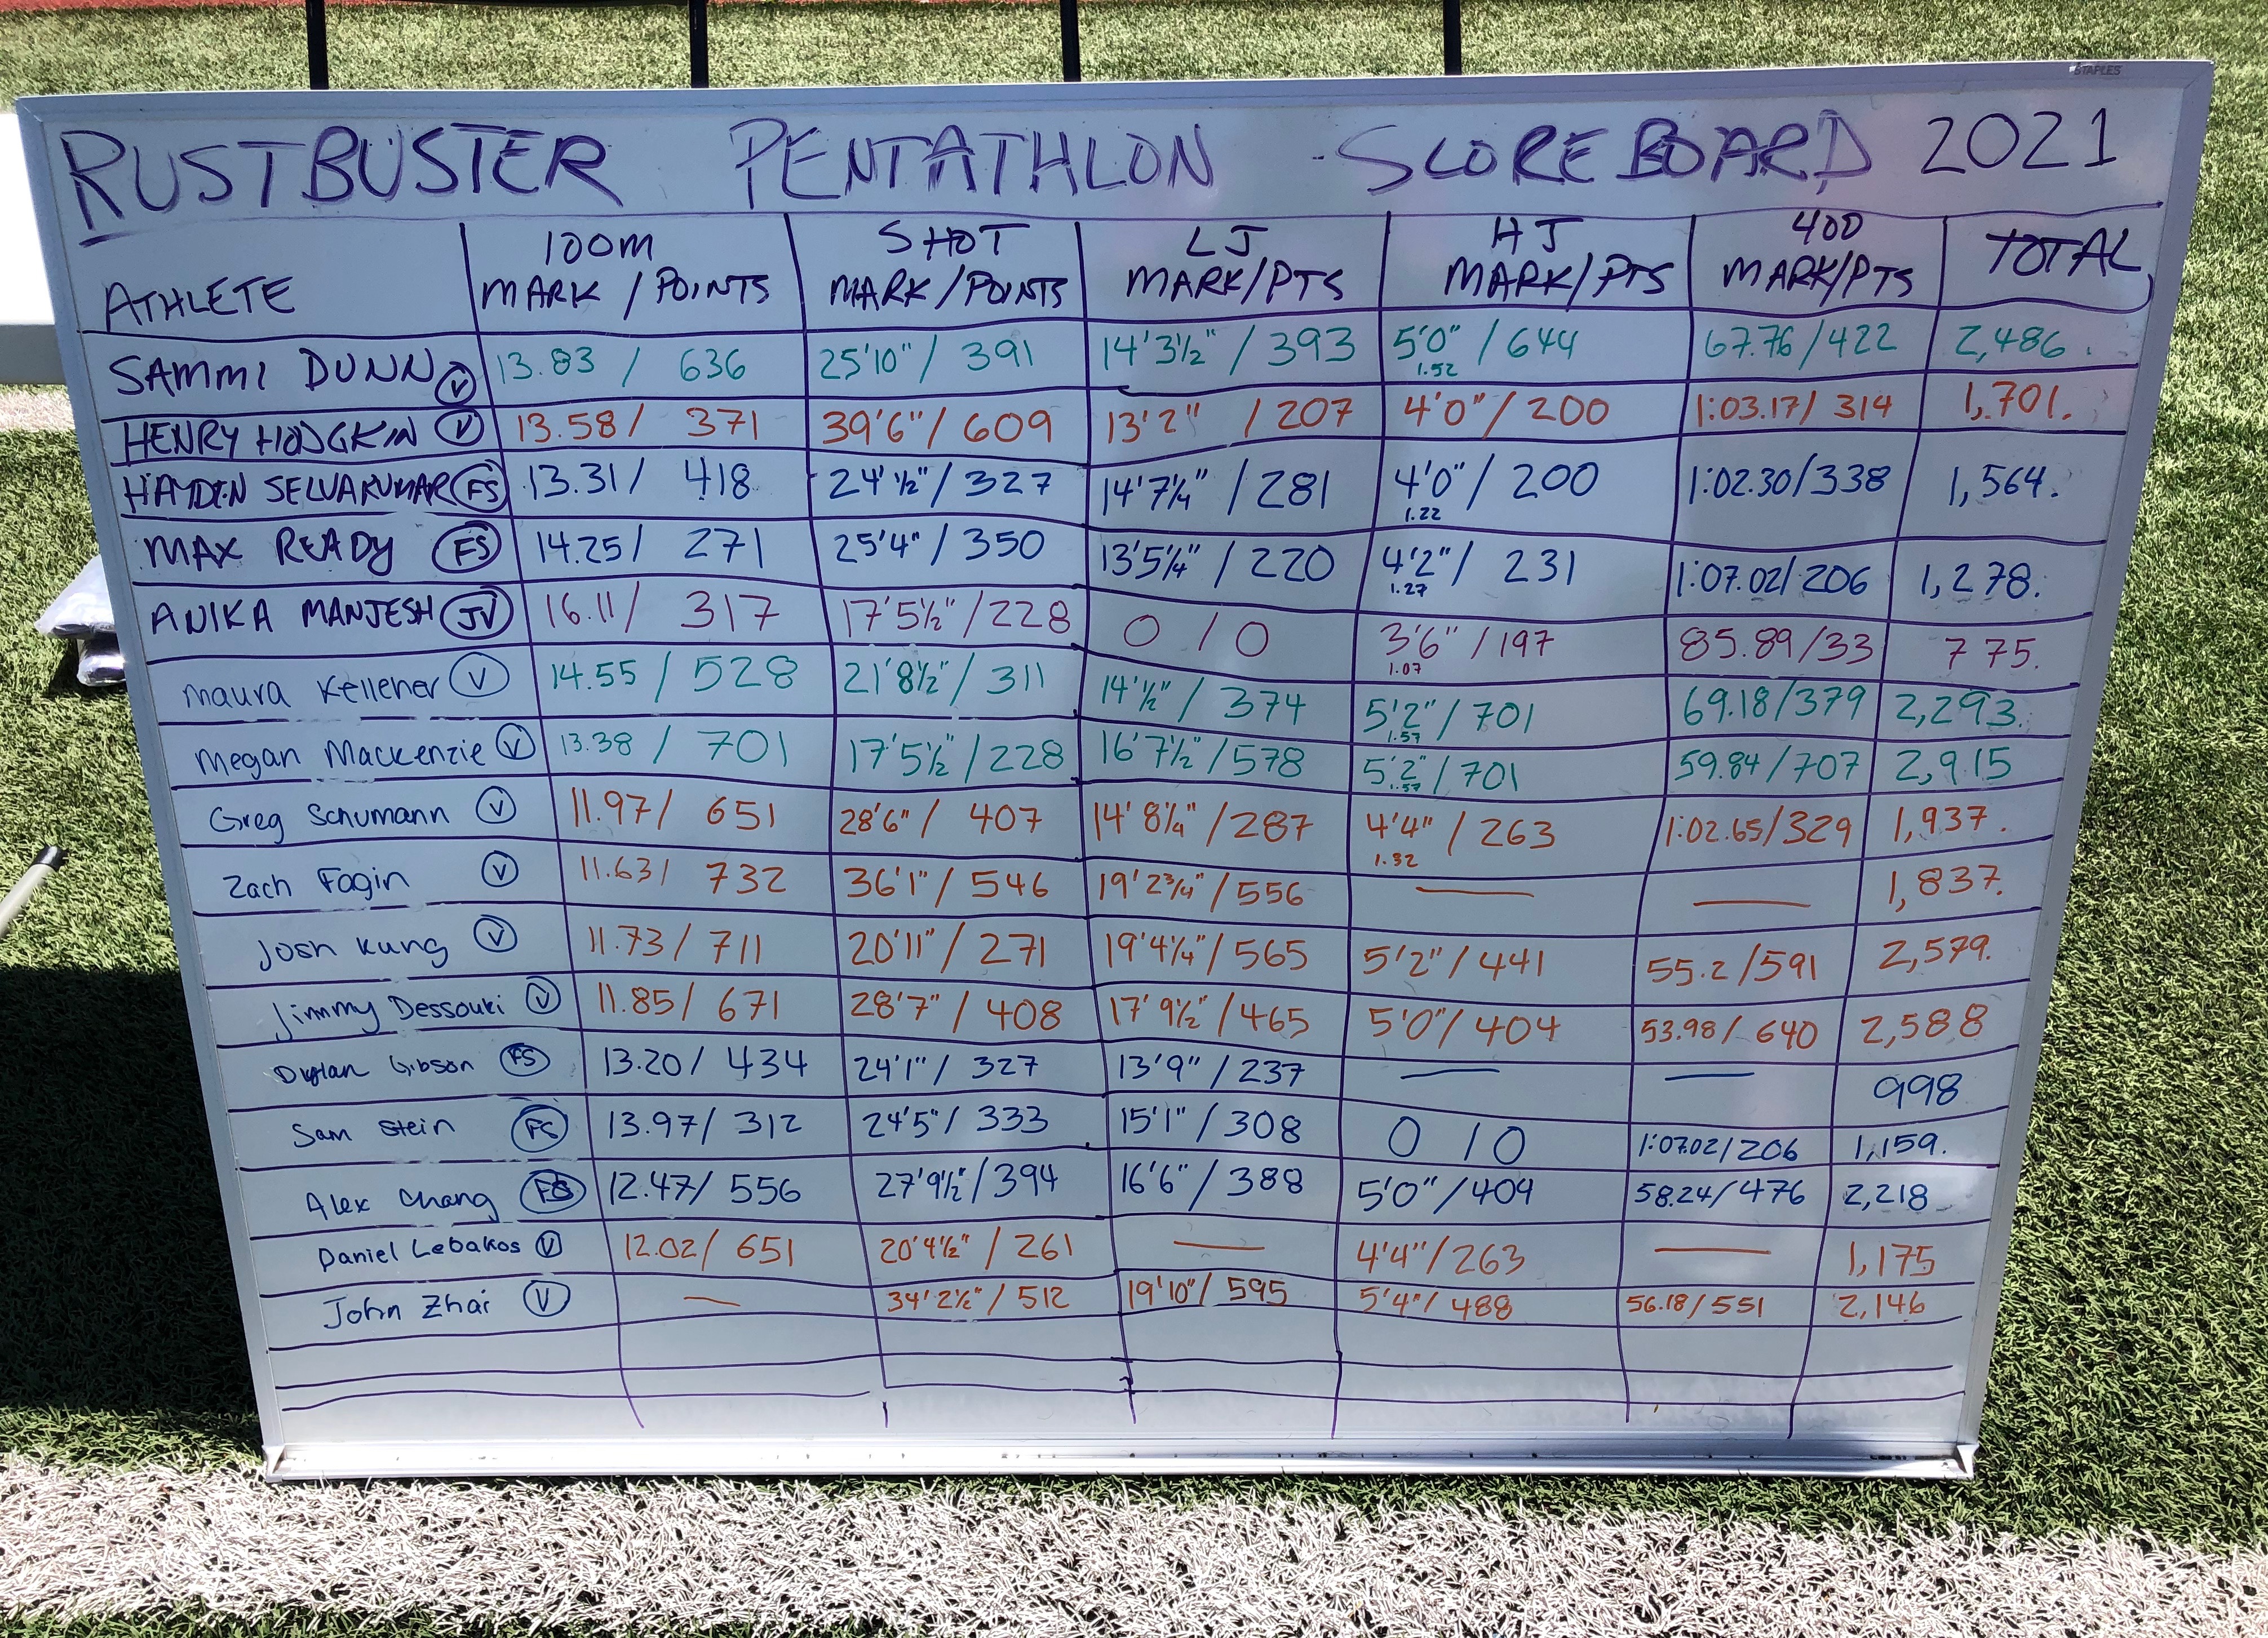 STAPLES
RUSTBUSTER PENTATHLON SCOREBOARD 2021
100M SHOT LJ HJ 400 TOTAL
ATHLETE MARK / POINTS MARK / POINTS MARK/PTS MARK/PTS MARK/PTS
SAMMI DUNN V 13.83 / 636 25'10" / 391 14'3½" / 393 5'0" / 644 1.52 67.76/422 2,486.
HENRY HODGKIN V 13.58 / 371 39'6" / 609 13'2" / 207 4'0" / 200 1:03.17/ 314 1,701.
HAYDEN SELVAKUMAR FS 13.31 / 418 24'½" / 327 14'7¼" / 281 4'0" / 200 1.22 1:02.30/338 1,564.
MAX READY FS 14.25 / 271 25'4" / 350 13'5¼" / 220 4'2" / 231 1.27 1:07.02/206 1,278.
ANIKA MANJESH JV 16.11 / 317 17'5½" / 228 0 / 0 3'6" / 197 1.07 85.89/33 775.
Maura Kelleher V 14.55 / 528 21'8½" / 311 14'½" / 374 5'2" / 701 1.57 69.18/379 2,293.
Megan Mackenzie V 13.38 / 701 17'5½" / 228 16'7½" / 578 5'2" / 701 1.57 59.84/707 2,915
Greg Schumann V 11.97 / 651 28'6" / 407 14'8¼" / 287 4'4" / 263 1.32 1:02.65/329 1,937.
Zach Fagin V 11.63 / 732 36'1" / 546 19'2¾" / 556 — — 1,837.
Josh Kung V 11.73 / 711 20'11" / 271 19'4¼" / 565 5'2" / 441 55.2/591 2,579.
Jimmy Dessouki V 11.85 / 671 28'7" / 408 17'9½" / 465 5'0" / 404 53.98/ 640 2,588
Dylan Gibson FS 13.20 / 434 24'1" / 327 13'9" / 237 — — 998
Sam Stein FS 13.97 / 312 24'5" / 333 15'1" / 308 0 / 0 1:07.02/206 1,159.
Alex Chang FS 12.47 / 556 27'9½" / 394 16'6" / 388 5'0" / 404 58.24/476 2,218
Daniel Lebakos V 12.02 / 651 20'4½" / 261 — 4'4" / 263 — 1,175
John Zhai V — 34'2½" / 512 19'10" / 595 5'4" / 488 56.18/551 2,146